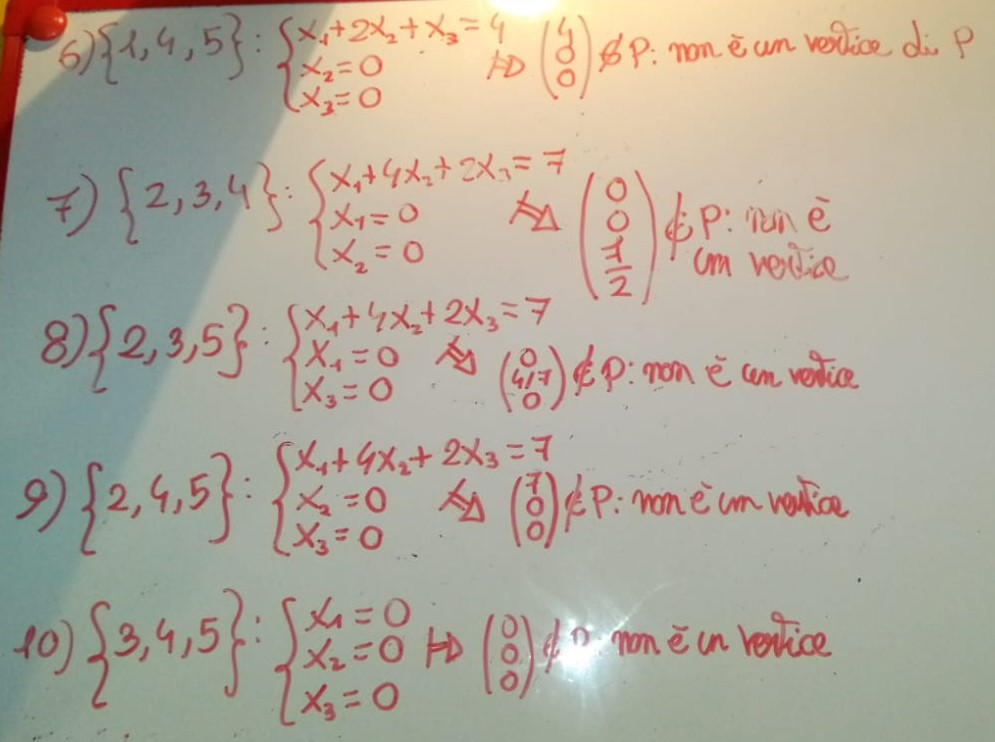 6) {1,4,5}: { x₁+2x₂+x₃=4
x₂=0
x₃=0 ⇒ (4 0 0) ∉ P: non è un vertice di P
7) {2,3,4}: { x₁+4x₂+2x₃=7
x₁=0
x₂=0 ⇒ (0 0 7/2) ∉ P: non è
un vertice
8) {2,3,5}: { x₁+4x₂+2x₃=7
x₁=0
x₃=0 ⇒ (0 4/7 0) ∉ P: non è un vertice
9) {2,4,5}: { x₁+4x₂+2x₃=7
x₂=0
x₃=0 ⇒ (7 0 0) ∉ P: non è un vertice
10) {3,4,5}: { x₁=0
x₂=0
x₃=0 ⇒ (0 0 0) ∉ P: non è un vertice